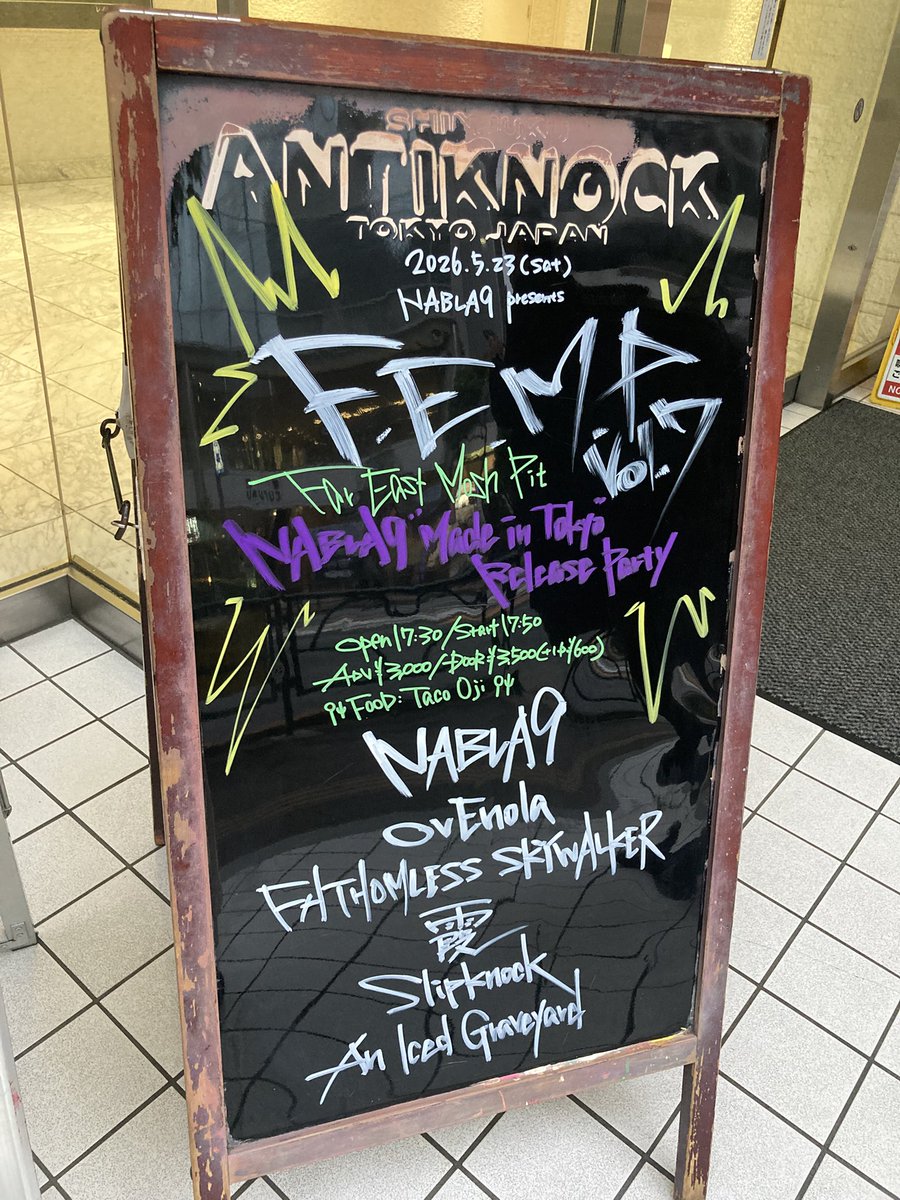 SHINJUKU
ANTIKNOCK
TOKYO JAPAN
2026.5.23(sat)
NABLA9 presents
F.E.M.P
vol.7
Far East Mosh Pit
NABLA9 "Made in Tokyo"
Release Party
Open17:30/Start17:50
ADV¥3,000/DOOR¥3,500(+1D¥600)
FOOD: Taco Oji
NABLA9
OvEnola
FATHOMLESS SKYWALKER
霞
Slipknock
An Iced Graveyard
NO